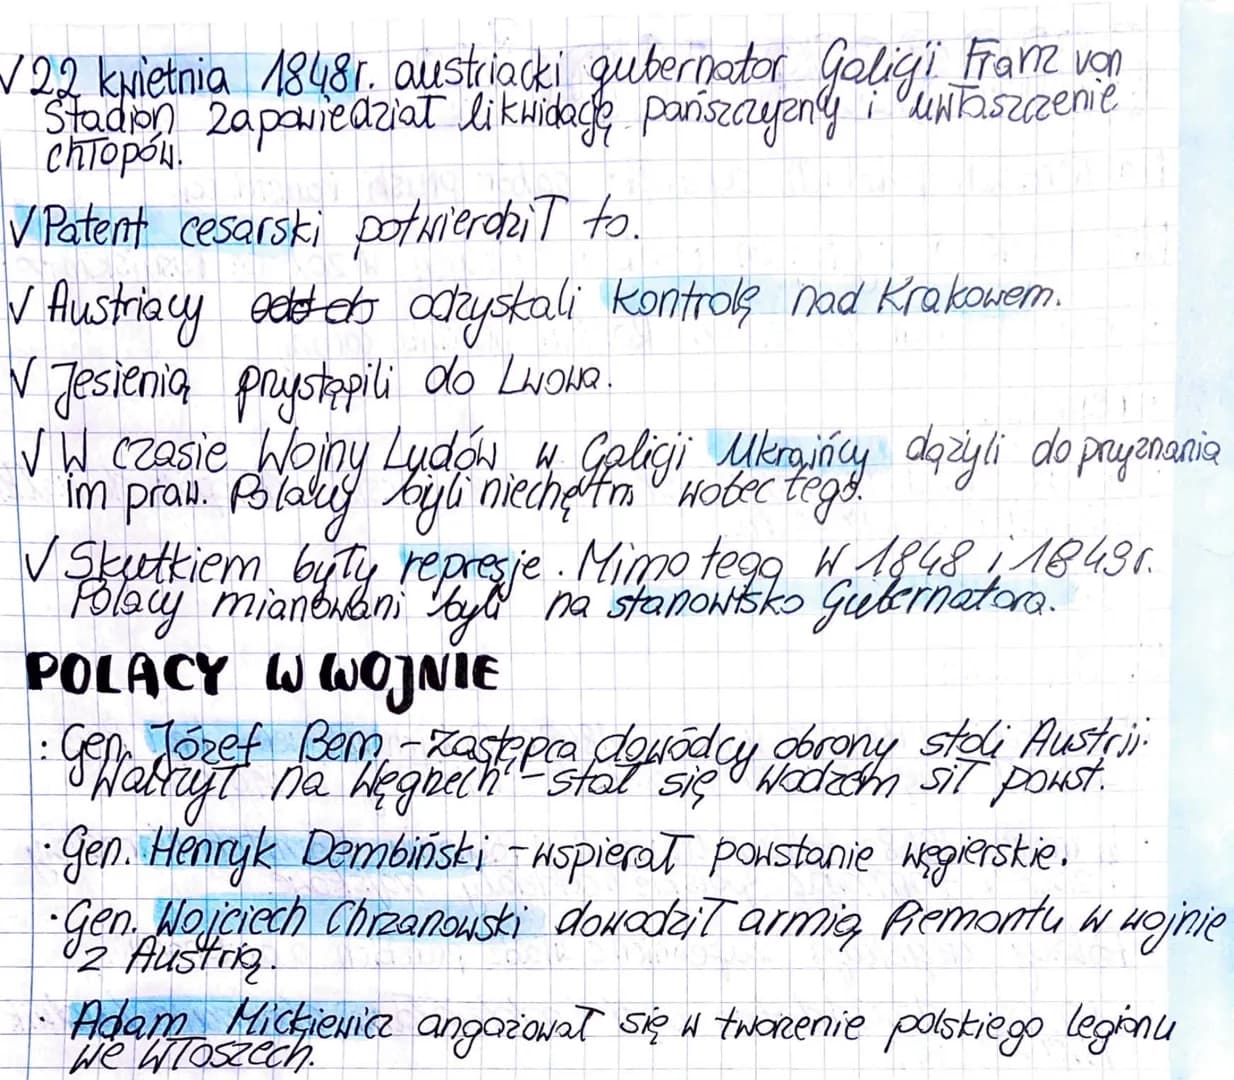 √ 22 kwietnia 1848r. austriacki gubernator Galicji Franz von
Stadion zapowiedział likwidację pańszczyzny i uwłaszczenie
chłopów.
√ Patent cesarski potwierdził to.
√ Austriacy odzyskali kontrolę nad Krakowem.
√ Jesienią przystąpili do Lwowa.
√ W czasie Wojny Ludów w Galicji Ukraińcy dążyli do przyznania
im praw. Polacy byli niechętni wobec tego.
√ Skutkiem były represje. Mimo tego w 1848 i 1849r.
Polacy mianowani byli na stanowisko Gubernatora.
POLACY W WOJNIE
· Gen. Józef Bem - zastępca dowódcy obrony stoli Austrii.
Walczył na Węgrzech - stał się wodzem sił powst.
· Gen. Henryk Dembiński - wspierał powstanie węgierskie.
· Gen. Wojciech Chrzanowski dowodził armią Piemontu w wojnie
z Austrią.
· Adam Mickiewicz angażował się w tworzenie polskiego legionu
we Włoszech.